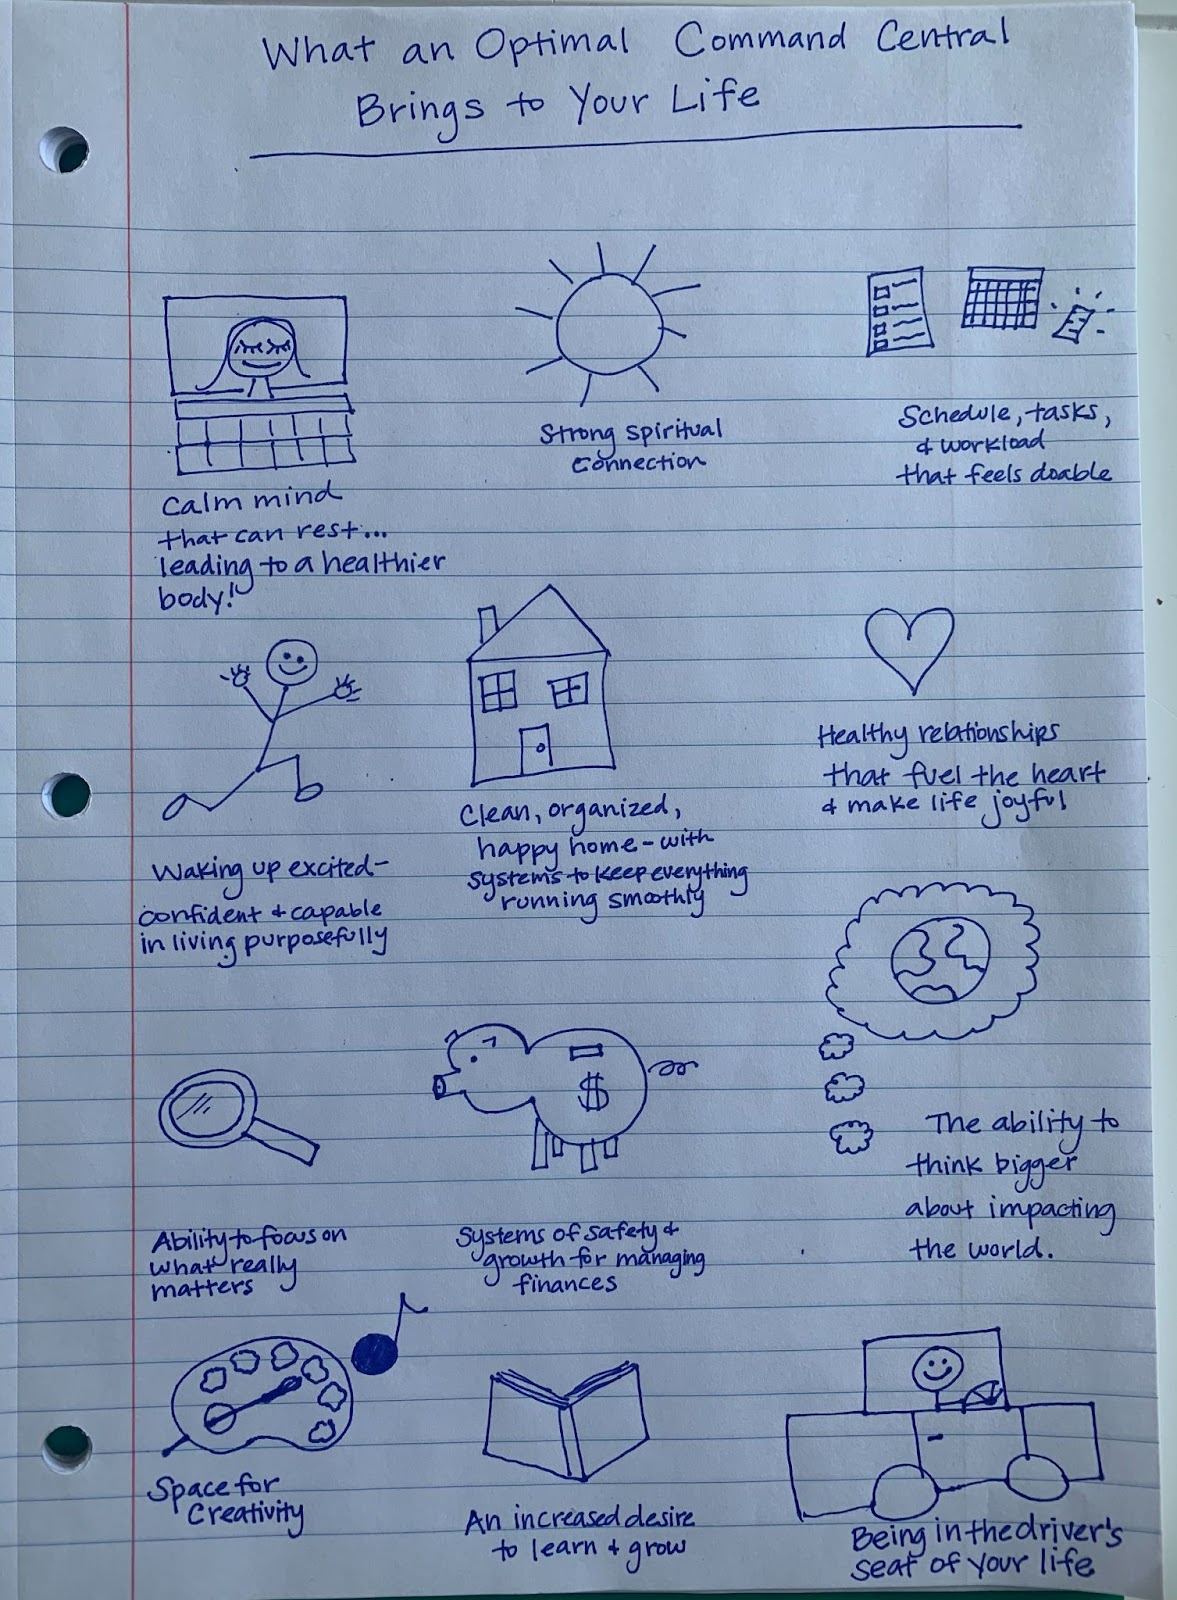 What an Optimal Command Central
Brings to Your Life
Calm mind
that can rest...
leading to a healthier
body!
Strong spiritual
connection
Schedule, tasks,
& workload
that feels doable
Waking up excited-
confident & capable
in living purposefully
Clean, organized,
happy home - with
systems to keep everything
running smoothly
Healthy relationships
that fuel the heart
& make life joyful
Ability to focus on
what really
matters
$
Systems of safety &
growth for managing
finances
The ability to
think bigger
about impacting
the world.
Space for
Creativity
An increased desire
to learn & grow
Being in the driver's
seat of your life